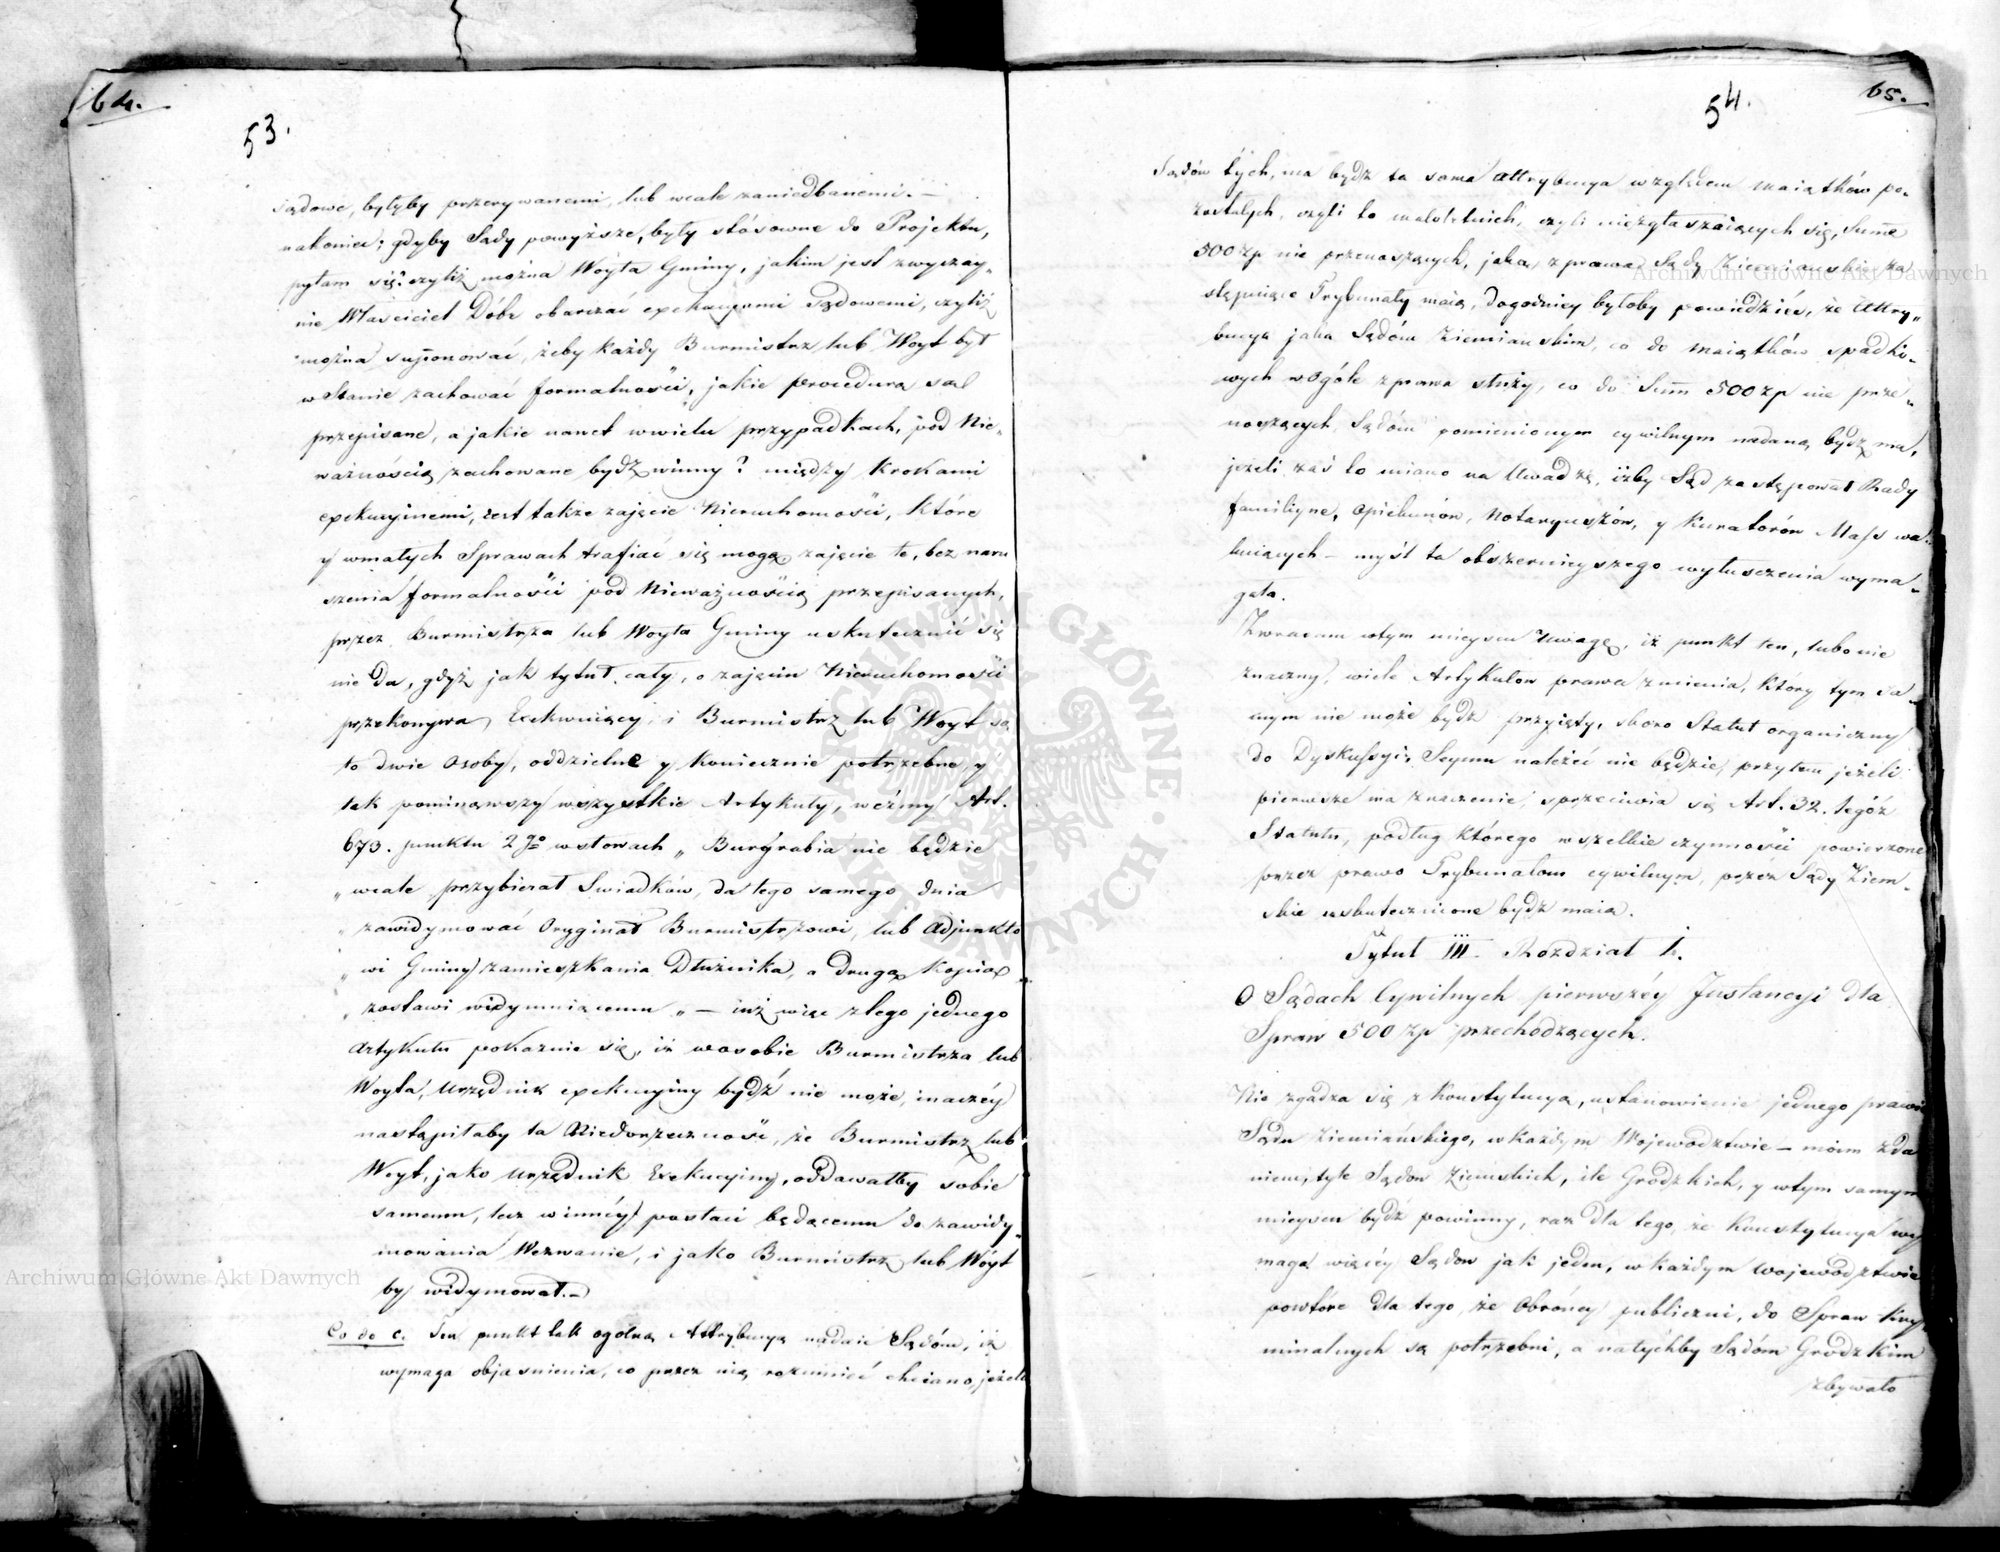 64.
53.
sądowe, byłyby przerywanemi, lub wcale zaniedbanemi. —
nakoniec; gdyby Sądy powyższe, były stósowne do Projektu,
pytam się? czyliż można Woyta Gminy, jakim jest zwyczay„
nie Właściciel Dóbr obarczać exekucyami Sądowemi, czyliż
można suponować, żeby każdy Burmistrz lub Woyt był
w stanie zachować formalności, jakie procedura są
przepisane, a jakie nawet w wielu przypadkach, pod Nie„
ważnością zachowane bydź winny? między Krokami
exekucyinemi, iest także zajęcie Nieruchomości, Które
y w małych Sprawach trafiać się mogą zajęcie te, bez naru
szenia formalności pod Nieważnością przepisanych,
przez Burmistrza lub Woyta Gminy uskutecznić się
nie da, gdyż jak tytuł cały, o zajęciu Nieruchomości
przekonywa, Exekwuiący, i Burmistrz lub Woyt są
to dwie Osoby, oddzielne y Koniecznie potrzebne, y
tak pominąwszy wszystkie Artykuły, weźmy Art.
673. punktu 2go w słowach „ Burgrabia nie będzie
„ wcale przybierał Swiadków, da tego samego dnia
„ zawidymować Oryginał Burmistrzowi, lub Adjunkto
„ wi Gminy zamieszkania Dłużnika, a drugą Kopią
„ zostawi widymuiącemu „ — iuż więc z tego jednego
Artykułu pokaznie się, iż w osobie Burmistrza lub
Woyta, Urzędnik exekucyiny bydź nie może, inaczéy
nastąpiłaby ta Niedorzeczność, że Burmistrz lub
Woyt, jako Urzędnik Exekucyiny, oddawałby sobie
samemu, lecz w innéy postaci będącemu do zawidy„
mowania Wezwanie, i jako Burmistrz lub Wóyt
by widymował. —
Co do c. Ten punkt tak ogólną Attrybucyą nadaie Sądóm, iż
wymaga objasnienia, co przez nią rozumieć chciano, jeżeli
65.
54.
Sądów tych, ma bydź ta sama Attrybucya względem maiątków po„
zostałych, czyli to małoletnich, czyli niezgłaszaiących się, Summe
500 zp nie przenoszących, jaką z prawa Sądy Ziemianskie za
stępuiące Trybunały maią, dogodniey byłoby powiedzieć, że Attry„
bucya jaka Sądóm Ziemianskim, co do maiątków spadko„
wych w Ogóle z prawa służy, co do Summ 500 zp nie prze„
noszących, Sądóm pomienionym cywilnym nadaną bydź ma,
jeżeli zaś to miano na Uwadze, iżby Sąd zastępował Rady
familiyne, Opiekunów, Notaryuszów, y Kuratorów Mass wa„
kuiących — myśl ta obszernieyszego wyłuszczenia wyma„
gała.
Zwracam w tym mieyscu Uwagę, iż punkt ten, lubo nie
znaczny, wiele Artykułow prawa zmienia, Który tym sa
mym nie może bydź przyięty, skoro Statut organiczny
do Dyskussyi Seymu należeć nie będzie, przytem jeżeli
pierwsze ma znaczenie, sprzeciwia się Art. 32. tegóż
Statutu, podług Którego wszelkie czynności powierzone
przez prawo Trybunałom cywilnym, przez Sądy Ziem„
skie uskutecznione bydź maią.
Tytuł III. Rozdział 1.
O Sądach Cywilnych pierwszéy Instancyi dla
Spraw 500 zp przechodzących.
Nie zgadza się z Konstytucyą, ustanowienie jednego prawie
Sądu Ziemiańskiego, w każdym Wojewodztwie — moim zda
niem, tyle Sądow Ziemskich, ile Grodzkich, y w tym samym
mieyscu bydź powinny, raz dla tego, że Konstytucya wy
maga więcéy Sądow jak jeden, w każdym Wojewodztwie
powtóre dla tego, że Obrońcy publiczni, do Spraw Kry„
minalnych są potrzebni, a na tychby Sądóm Grodzkim
zbywało
Archiwum Główne Akt Dawnych
Archiwum Główne Akt Dawnych
ARCHIWUM GŁÓWNE AKT DAWNYCH